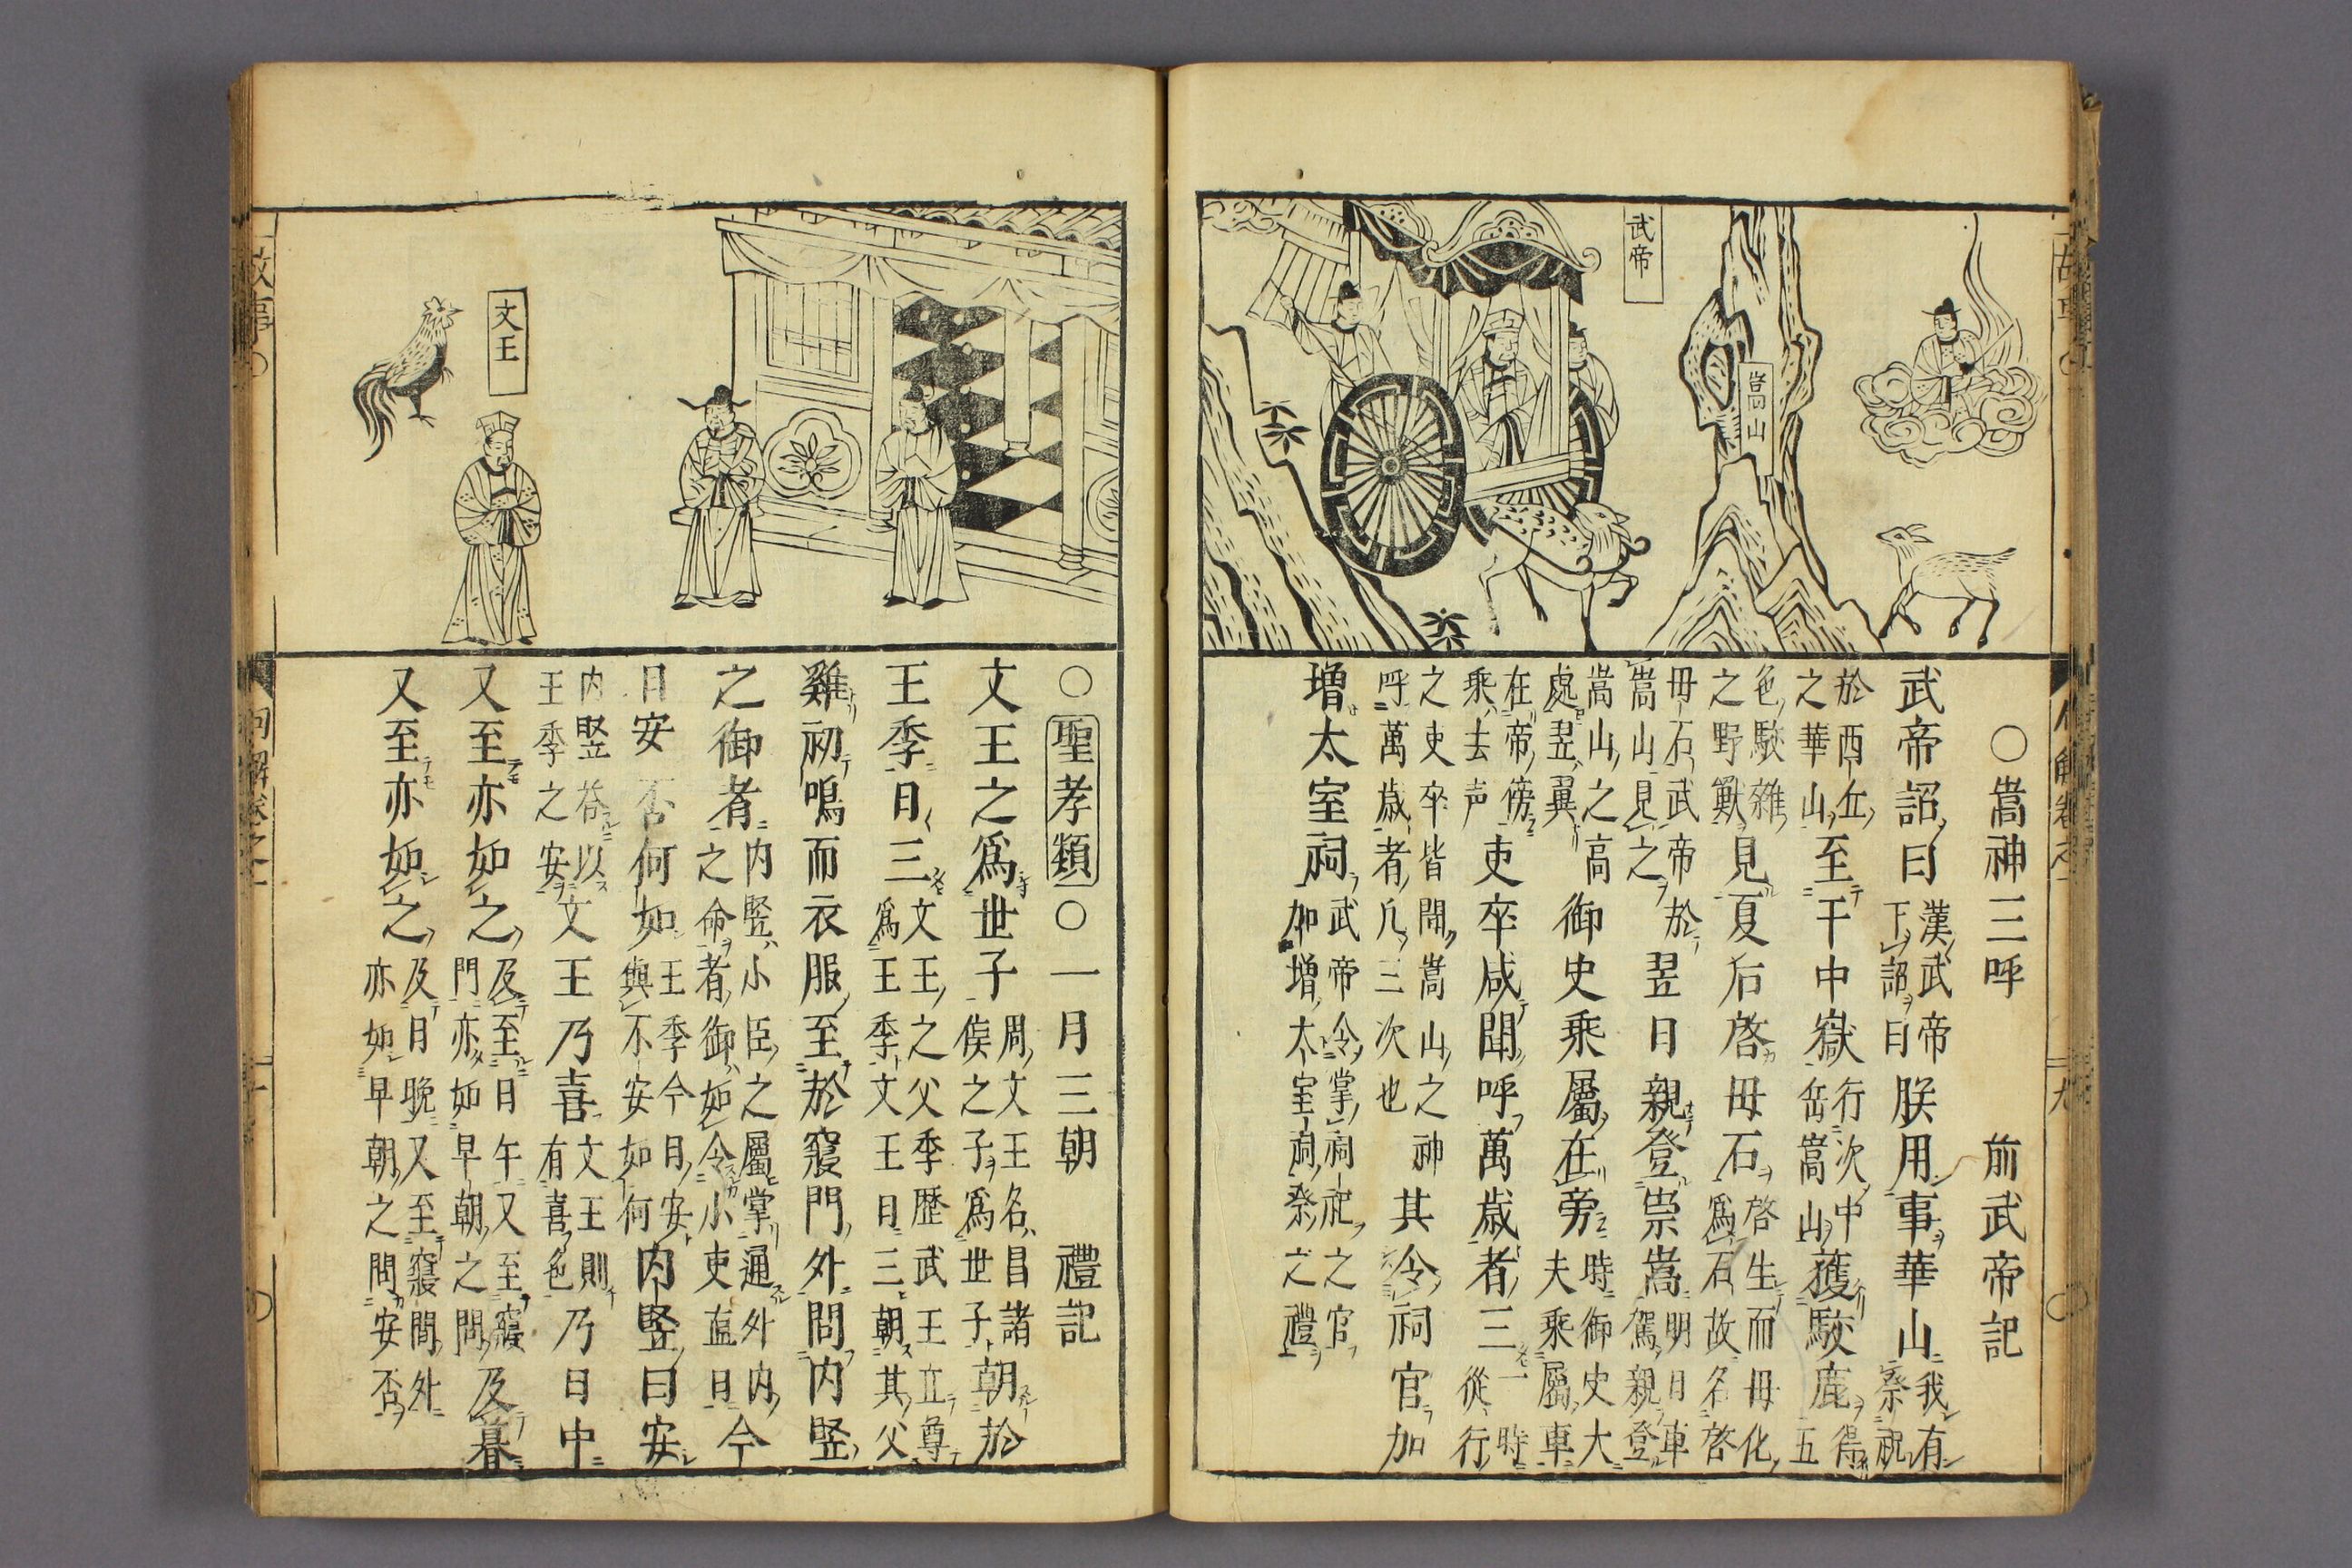 嵩山
武帝
○嵩神三呼 前武帝記
武帝詔曰漢武帝下詔曰朕用事華山我有祭祝
於西丘之華山至于中嶽行次中岳嵩山獲駮鹿得五
色駮雜之野獸見夏后啓母石啓生而母化爲石故名啓
母石武帝於嵩山見之翌日親登崇嵩明日車駕親登
嵩山之高處翌翼御史乘屬在旁時御史大夫乘屬車
在帝傍乘去声吏卒咸聞呼萬歲者三一時從行
之吏卒皆聞嵩山之神呼萬歲者凡三次也其令祠官加
增太室祠武帝令掌祠祀之官加增太室祠祭之禮
文王
○聖孝類○一月三朝 禮記
文王之爲世子周文王名昌諸侯之子爲世子朝於
王季日三文王之父季歷武王立尊爲王季文王日三朝其父
雞初鳴而衣服至於寢門外問内竪
之御者内竪小臣之屬掌通外内之命者御如今小吏直日今
日安否何如王季今日安與不安如何内竪曰安
内竪答以王季之安文王乃喜文王則有喜色乃日中
又至亦如之及至日午又至寢門亦如早朝之問及暮
又至亦如之及日晩又至寢門外亦如早朝之問安否
故事